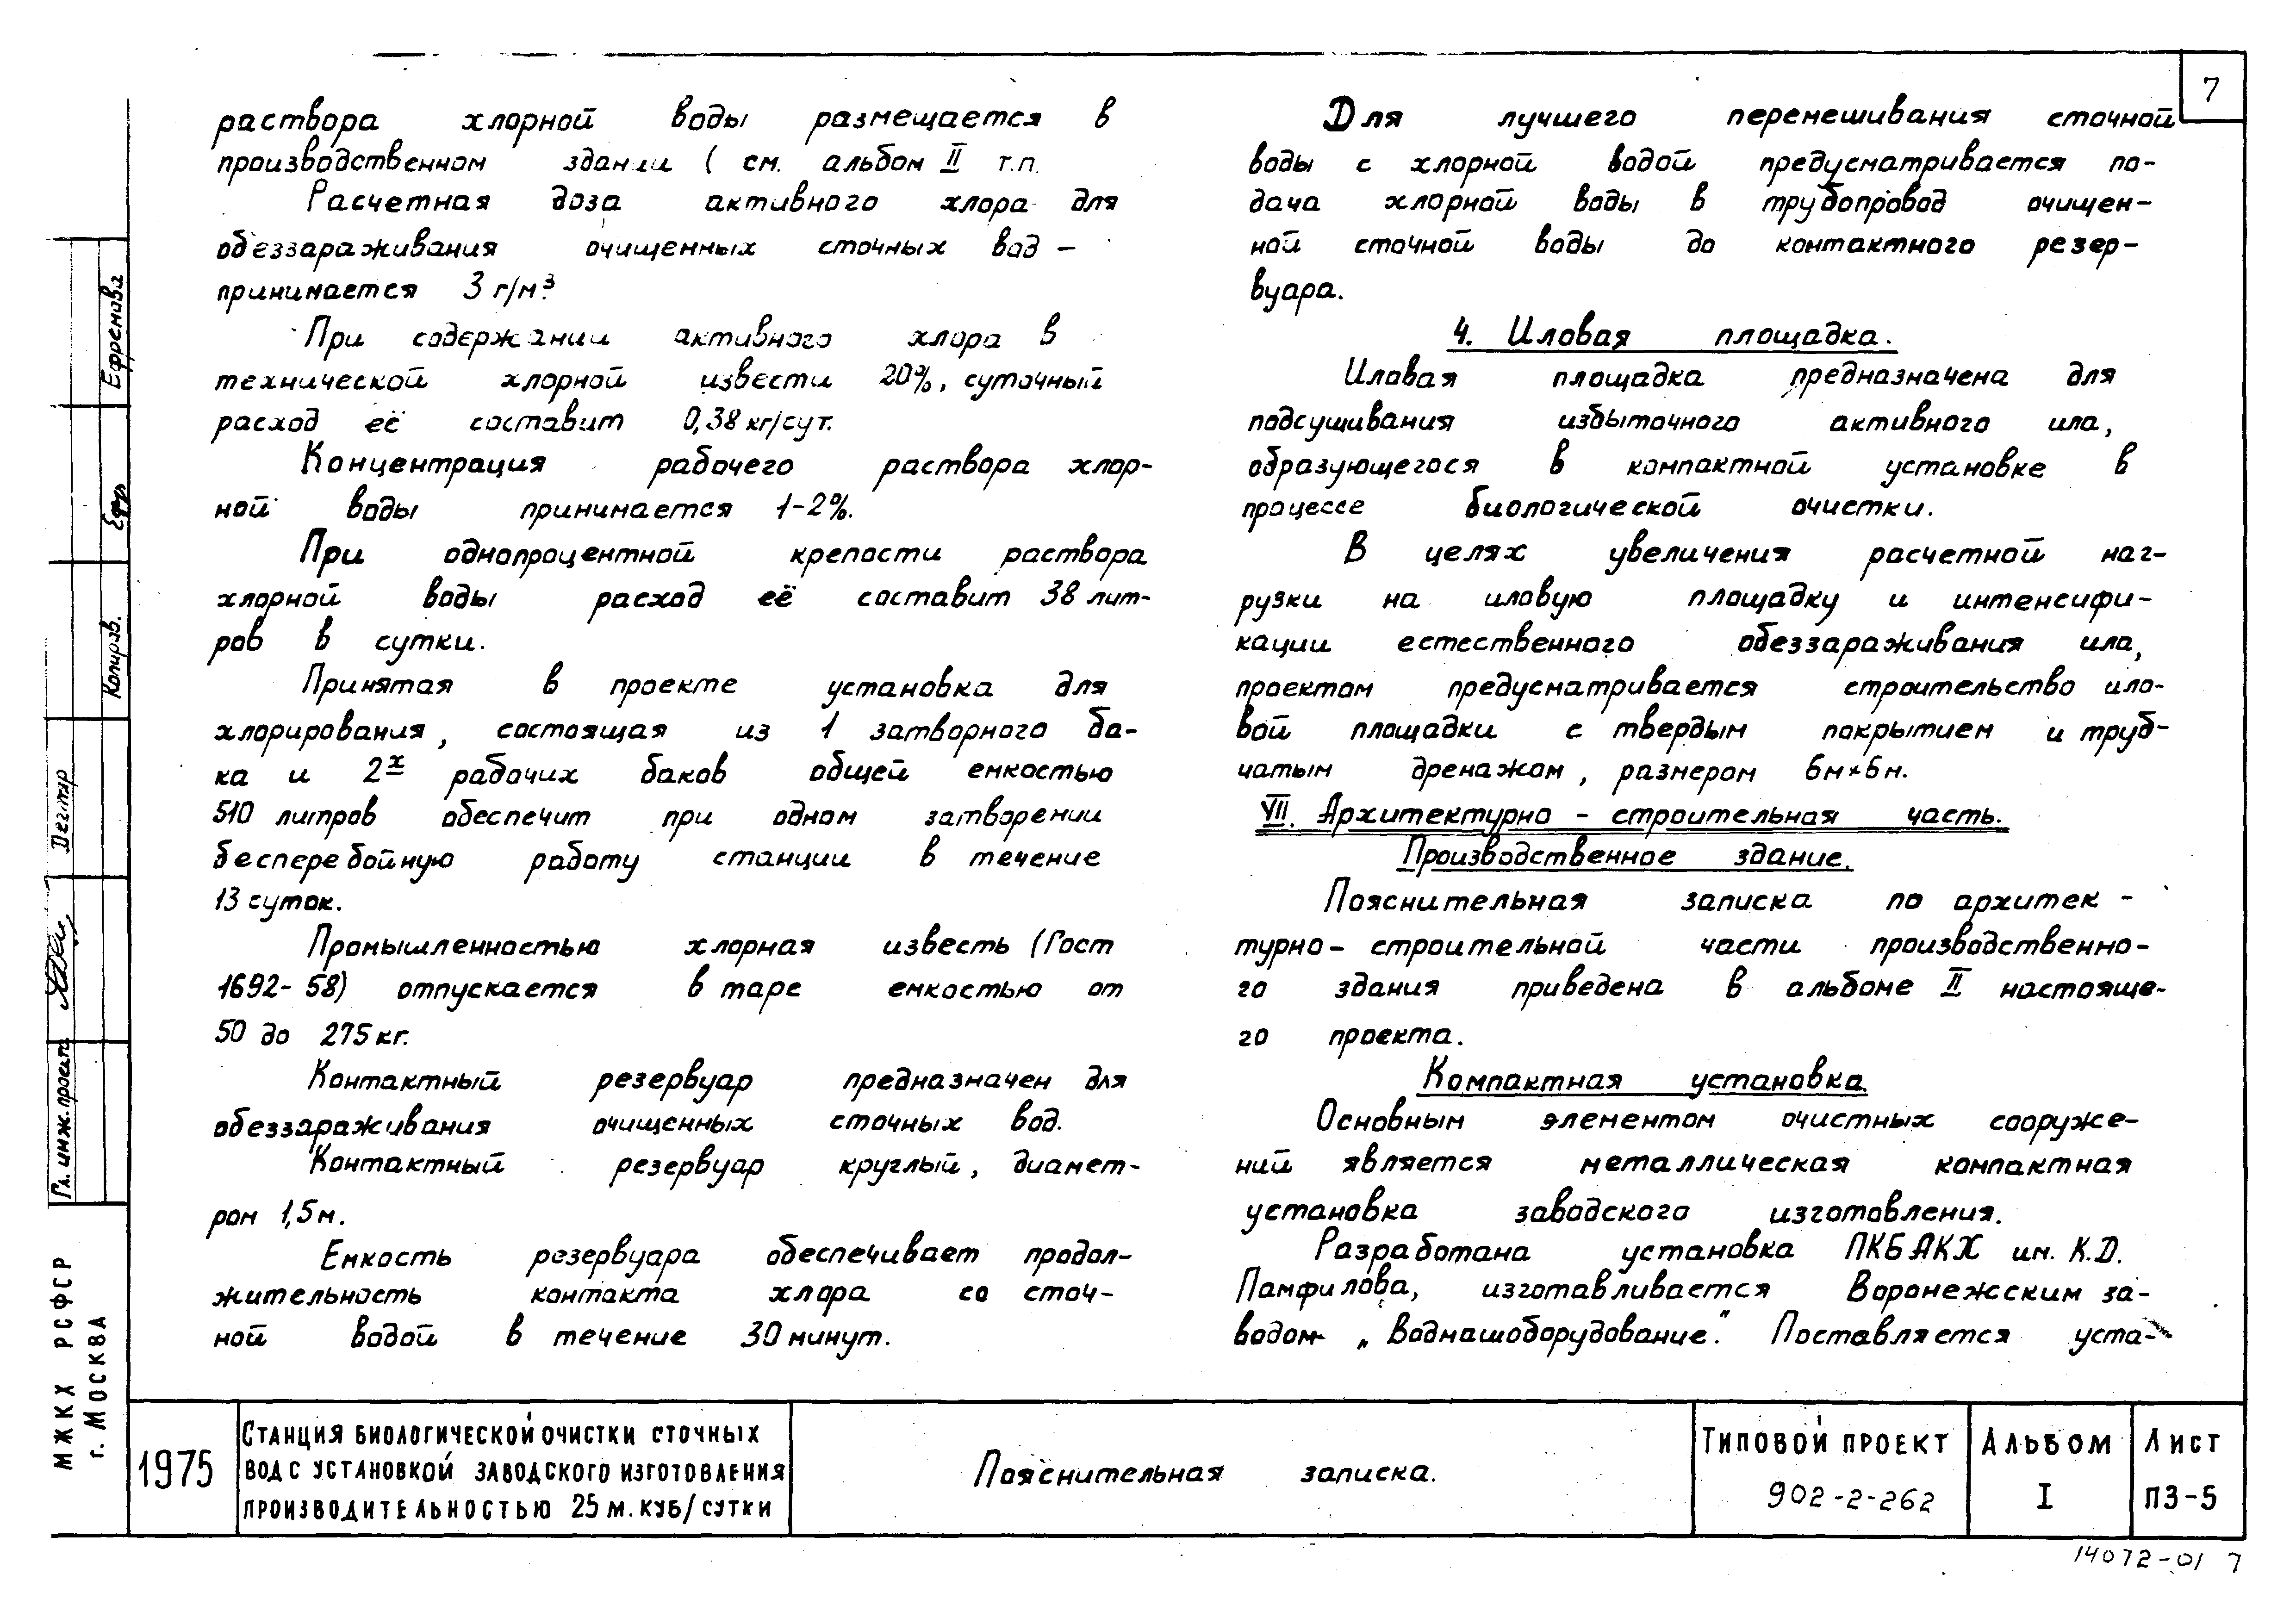 7
раствора хлорной воды размещается в
производственном здании ( см. альбом II т.п.
Расчетная доза активного хлора для
обеззараживания очищенных сточных вод –
принимается 3 г/м³
При содержании активного хлора в
технической хлорной извести 20%, суточный
расход её составит 0,38 кг/сут.
Концентрация рабочего раствора хлор-
ной воды принимается 1-2%.
При однопроцентной крепости раствора
хлорной воды расход её составит 38 лит-
ров в сутки.
Принятая в проекте установка для
хлорирования, состоящая из 1 затворного ба-
ка и 2х рабочих баков общей емкостью
510 литров обеспечит при одном затворении
бесперебойную работу станции в течение
13 суток.
Промышленностью хлорная известь (Гост
1692-58) отпускается в таре емкостью от
50 до 275 кг.
Контактный резервуар предназначен для
обеззараживания очищенных сточных вод.
Контактный резервуар круглый, диамет-
ром 1,5 м.
Емкость резервуара обеспечивает продол-
жительность контакта хлора со сточ-
ной водой в течение 30 минут.
Для лучшего перемешивания сточной
воды с хлорной водой предусматривается по-
дача хлорной воды в трубопровод очищен-
ной сточной воды до контактного резер-
вуара.
4. Иловая площадка.
Иловая площадка предназначена для
подсушивания избыточного активного ила,
образующегося в компактной установке в
процессе биологической очистки.
В целях увеличения расчетной наг-
рузки на иловую площадку и интенсифи-
кации естественного обеззараживания ила,
проектом предусматривается строительство ило-
вой площадки с твердым покрытием и труб-
чатым дренажом, размером 6м×6м.
VII. Архитектурно - строительная часть.
Производственное здание.
Пояснительная записка по архитек -
турно - строительной части производственно-
го здания приведена в альбоме II настояще-
го проекта.
Компактная установка
Основным элементом очистных сооруже-
ний является металлическая компактная
установка заводского изготовления.
Разработана установка ПКБ АКХ им. К.Д.
Памфилова, изготавливается Воронежским за-
водом „Водмашоборудование". Поставляется уста-
Ефремова
Ефр
Копиров.
Дегтяр
Гл. инж. проекта
МЖКХ РСФСР
г. Москва
1975
Станция биологической очистки сточных
вод с установкой заводского изготовления
производительностью 25 м. куб/сутки
Пояснительная записка.
Типовой проект
902-2-262
Альбом
I
Лист
ПЗ-5
14072-01 7